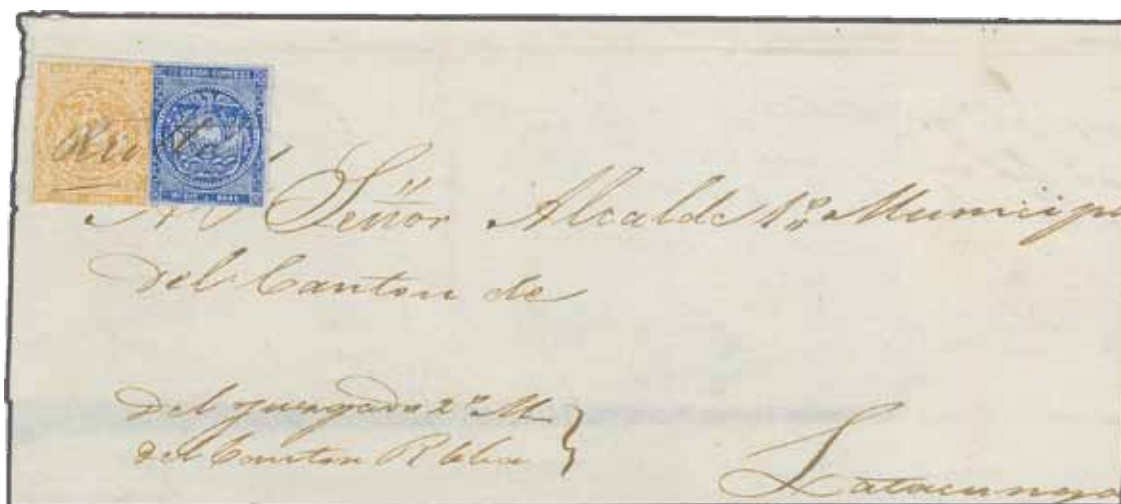 Al Señor Alcalde 1º Municip
del Canton de
del juzgado 2º M
del Canton Rbba
Latacunga